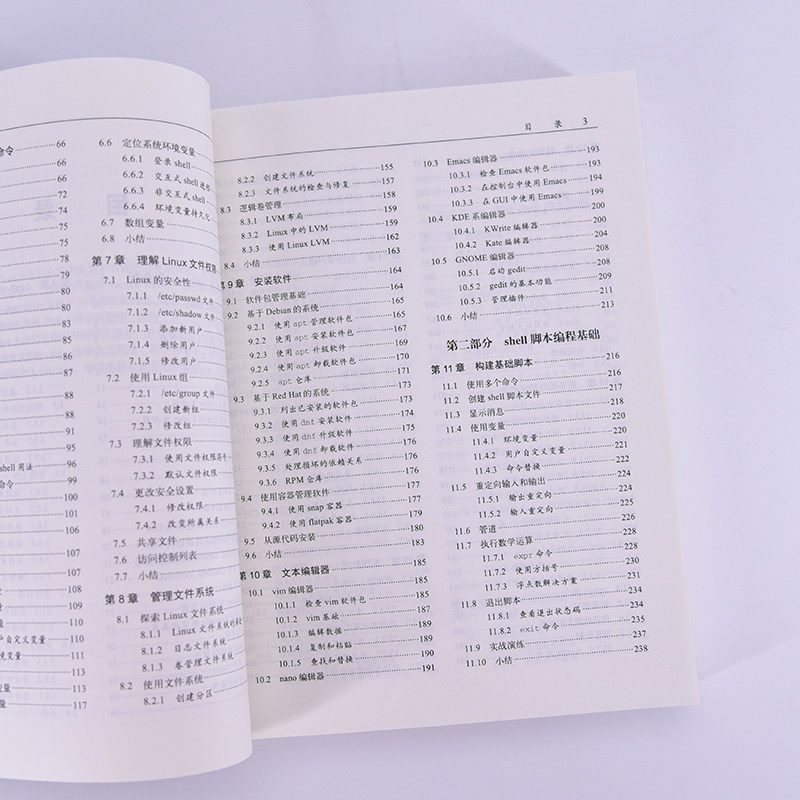 66
66
66
72
74
75
75
78
79
80
80
83
84
85
87
88
88
91
95
shell 用法 96
99
100
101
107
107
108
109
110
户自定义变量 110
111
113
113
117
6.6 定位系统环境变量
6.6.1 登录 shell
6.6.2 交互式 shell
6.6.3 非交互式 shell
6.6.4 环境变量持久化
6.7 数组变量
6.8 小结
第 7 章 理解 Linux 文件权限
7.1 Linux 的安全性
7.1.1 /etc/passwd 文件
7.1.2 /etc/shadow 文件
7.1.3 添加新用户
7.1.4 删除用户
7.1.5 修改用户
7.2 使用 Linux 组
7.2.1 /etc/group 文件
7.2.2 创建新组
7.2.3 修改组
7.3 理解文件权限
7.3.1 使用文件权限符号
7.3.2 默认文件权限
7.4 更改安全设置
7.4.1 修改权限
7.4.2 改变所属关系
7.5 共享文件
7.6 访问控制列表
7.7 小结
第 8 章 管理文件系统
8.1 探索 Linux 文件系统
8.1.1 Linux 文件系统的
8.1.2 日志文件系统
8.1.3 卷管理文件系统
8.2 使用文件系统
8.2.1 创建分区
目 录 3
8.2.2 创建文件系统 155
8.2.3 文件系统的检查与修复 157
8.3 逻辑卷管理 158
8.3.1 LVM 布局 159
8.3.2 Linux 中的 LVM 159
8.3.3 使用 Linux LVM 162
8.4 小结 163
第 9 章 安装软件 164
9.1 软件包管理基础 164
9.2 基于 Debian 的系统 165
9.2.1 使用 apt 管理软件包 165
9.2.2 使用 apt 安装软件包 167
9.2.3 使用 apt 升级软件 169
9.2.4 使用 apt 卸载软件包 170
9.2.5 apt 仓库 171
9.3 基于 Red Hat 的系统 173
9.3.1 列出已安装的软件包 173
9.3.2 使用 dnf 安装软件 174
9.3.3 使用 dnf 升级软件 175
9.3.4 使用 dnf 卸载软件 176
9.3.5 处理损坏的依赖关系 176
9.3.6 RPM 仓库 176
9.4 使用容器管理软件 177
9.4.1 使用 snap 容器 177
9.4.2 使用 flatpak 容器 179
9.5 从源代码安装 180
9.6 小结 183
第 10 章 文本编辑器 185
10.1 vim 编辑器 185
10.1.1 检查 vim 软件包 185
10.1.2 vim 基础 187
10.1.3 编辑数据 189
10.1.4 复制和粘贴 189
10.1.5 查找和替换 190
10.2 nano 编辑器 191
10.3 Emacs 编辑器 193
10.3.1 检查 Emacs 软件包 193
10.3.2 在控制台中使用 Emacs 194
10.3.3 在 GUI 中使用 Emacs 199
10.4 KDE 系编辑器 200
10.4.1 KWrite 编辑器 200
10.4.2 Kate 编辑器 204
10.5 GNOME 编辑器 208
10.5.1 启动 gedit 208
10.5.2 gedit 的基本功能 209
10.5.3 管理插件 211
10.6 小结 213
第二部分 shell 脚本编程基础
第 11 章 构建基础脚本 216
11.1 使用多个命令 216
11.2 创建 shell 脚本文件 217
11.3 显示消息 218
11.4 使用变量 220
11.4.1 环境变量 220
11.4.2 用户自定义变量 221
11.4.3 命令替换 222
11.5 重定向输入和输出 224
11.5.1 输出重定向 224
11.5.2 输入重定向 225
11.6 管道 226
11.7 执行数学运算 228
11.7.1 expr 命令 228
11.7.2 使用方括号 230
11.7.3 浮点数解决方案 231
11.8 退出脚本 234
11.8.1 查看退出状态码 234
11.8.2 exit 命令 235
11.9 实战演练 237
11.10 小结 238